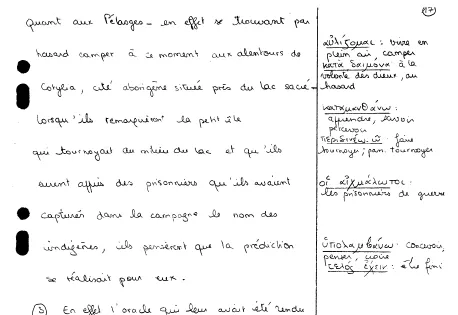 (17)
quant aux Pélasges - en effet se trouvant par
hasard camper à ce moment aux alentours de
Cotylia, cité aborigène située près du lac sacré -
lorsqu'ils remarquèrent la petit île
qui tournoyait au milieu du lac et qu'ils
eurent appris des prisonniers qu'ils avaient
capturés dans la campagne le nom des
indigènes, ils pensèrent que la prédiction
se réalisait pour eux.
③ En effet l'oracle qui leur avait été rendu
αὐλίζομαι : vivre en
plein air, camper
κατὰ δαίμονα à la
volonté des dieux, au
hasard
καταμανθάνω :
apprendre, savoir
percevoir
περιδινέω.ῶ : faire
tournoyer ; pas. tournoyer
οἱ αἰχμάλωτοι :
les prisonniers de guerre
ὑπολαμβάνω : concevoir,
penser, croire
τέλος ἔχειν : être fini